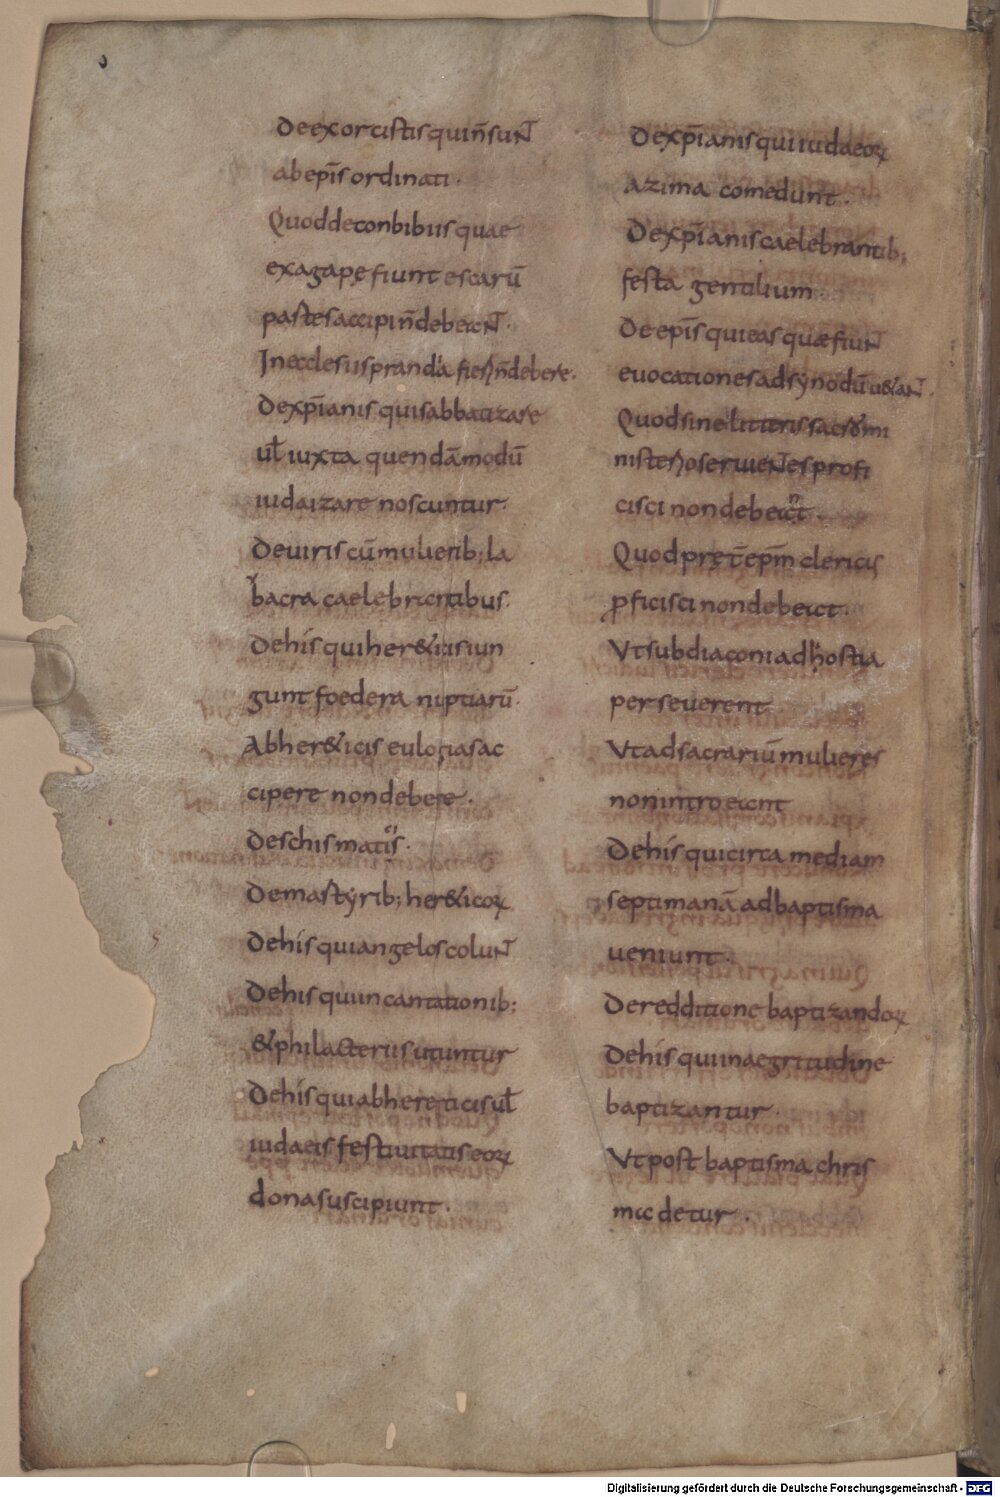 De exorcistis qui n̄ suNT
ab ep̄is ordinati·
Quod de conbibiis quae
ex agape fiunt escarū
partes accipi n̄ debeaNT·
In ecclesiis prandia fieri n̄ debere·
De xp̄ianis qui sabbatizare
uł iuxta quendā modū
iudaizare noscuntur·
De uiris cū mulierib; la
bacra caelebrantibus·
De his qui her&icis iun
gunt foedera niptiarū·
Ab her&icis eulogias ac
cipere non debere·
De schismatis·
De martyrib; her&icoꝝ
De his qui angelos coluNT
De his qui incantationib;
& philacteriis utuntur
De his qui ab hereticis uł
iudaeis festiuitatis eoꝝ
dona suscipiunt·
De xp̄ianis qui iudaeoꝝ
azima comedunt·
De xp̄ianis caelebrantib;
festa gentilium·
De ep̄is qui eas quæ fiuNT
euocationes ad synodū u&aNT·
Quod sine litteris sacerdōmi
nisterio seruieNTes profi
cisci non debeant·
Quod pręt̄ ep̄m clericis
ꝓficisci non debeant·
Vt subdiaconi ad hostia
perseuerent
Vt ad sacrariū mulieres
non introeant
De his qui circa mediam
septimanā ad baptisma
ueniunt·
De redditione baptizandoꝝ
De his qui in aegritudine
baptizantur·
Vt post baptisma chris
ma detur·
Digitalisierung gefördert durch die Deutsche Forschungsgemeinschaft - DFG